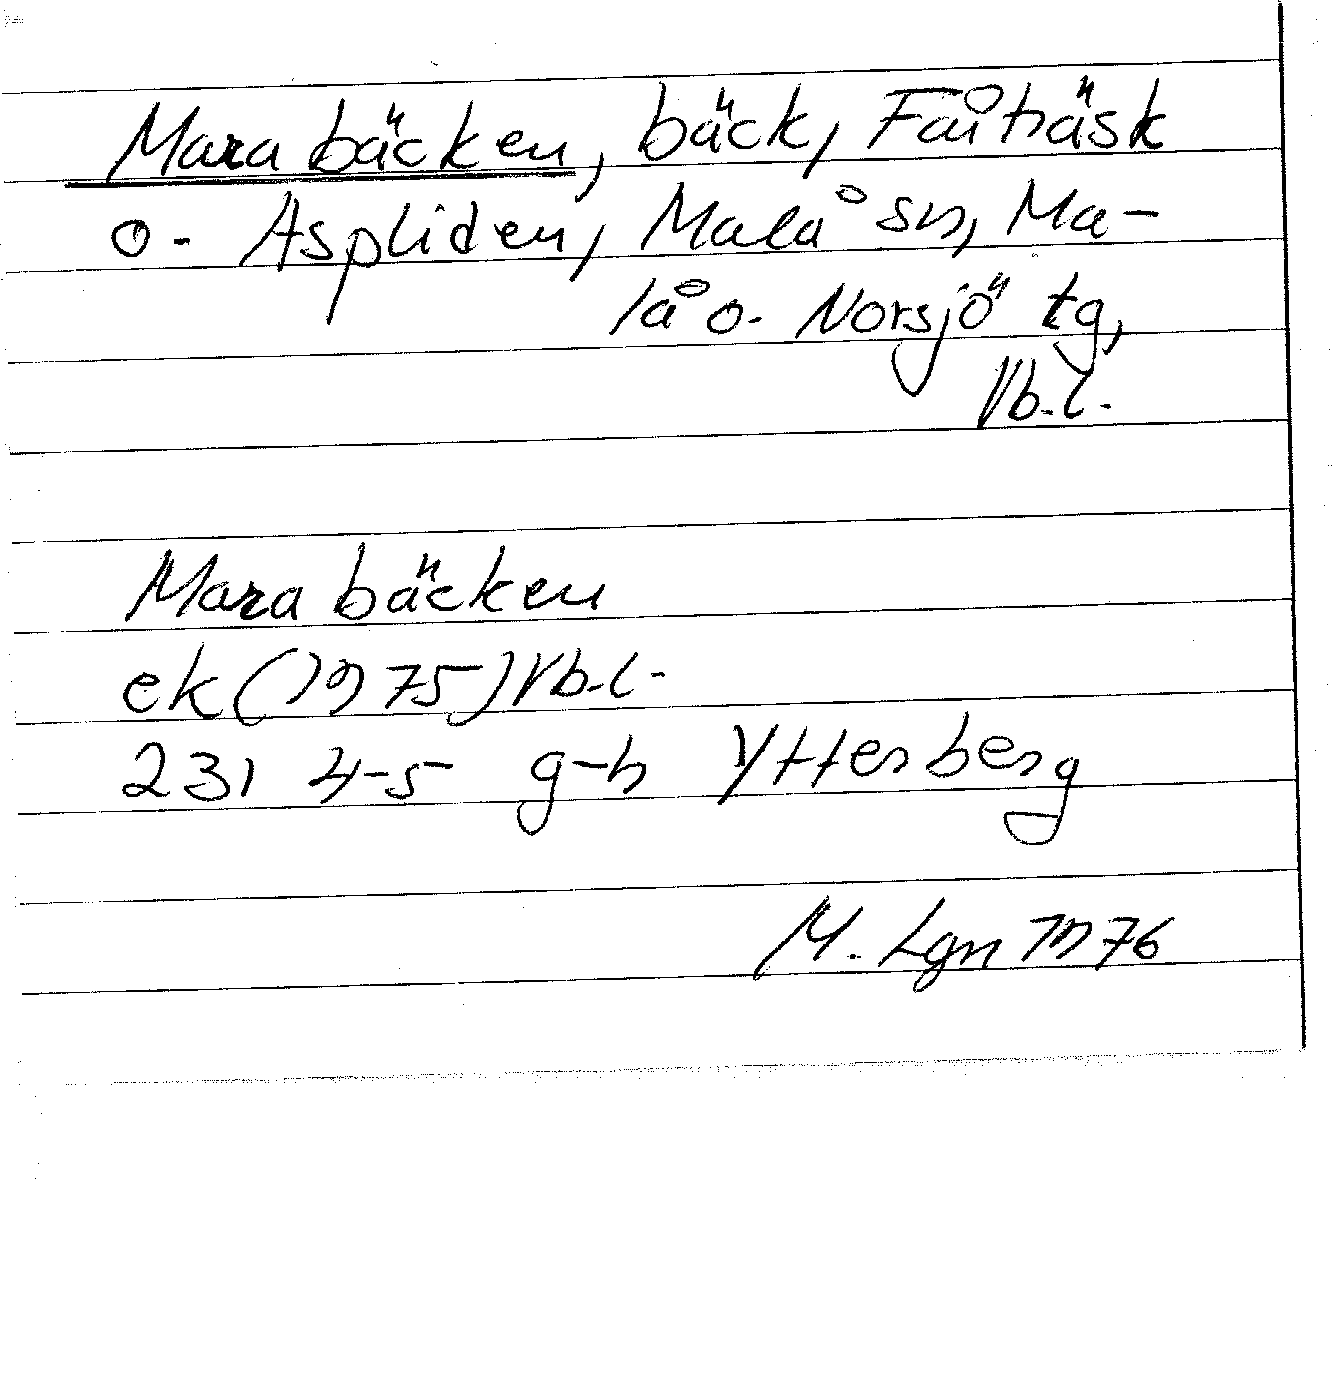 Marabäcken, bäck, Fårträsk
o. Aspliden, Malå sn, Ma-
lå o. Norsjö tg,
Vb.l.
Marabäcken
ek (1975) Vb.l.
231 4-5 g-h Ytterberg
M. Lgn 1976